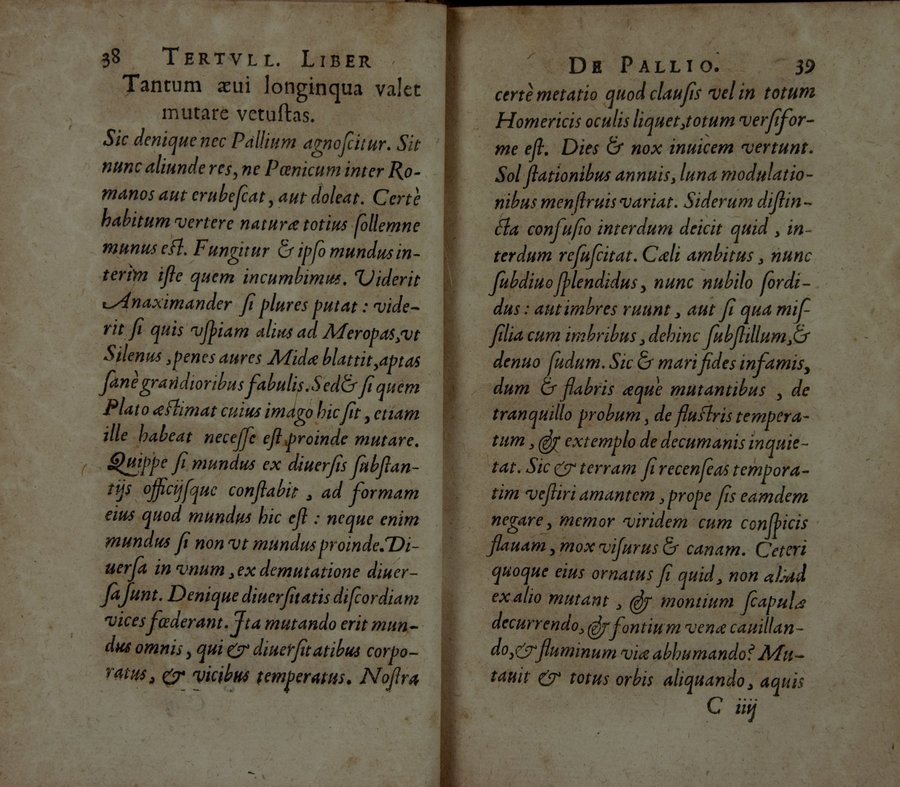 38 TERTVLL. LIBER
Tantum æui longinqua valet
mutare vetuſtas.
Sic denique nec Pallium agnoſcitur. Sit
nunc aliunde res, ne Pœnicum inter Ro-
manos aut erubeſcat, aut doleat. Certè
habitum vertere naturæ totius ſollemne
munus eſt. Fungitur & ipſo mundus in-
terim iſte quem incumbimus. Viderit
Anaximander ſi plures putat : vide-
rit ſi quis vſpiam alius ad Meropas, vt
Silenus, penes aures Midæ blattit, aptas
ſanè grandioribus fabulis. Sed & ſi quem
Plato æſtimat cuius imago hic ſit, etiam
ille habeat neceſſe eſt proinde mutare.
Quippe ſi mundus ex diuerſis ſubſtan-
tijs officijſque conſtabit, ad formam
eius quod mundus hic eſt : neque enim
mundus ſi non vt mundus proinde. Di-
uerſa in vnum, ex demutatione diuer-
ſa ſunt. Denique diuerſitatis diſcordiam
vices fœderant. Ita mutando erit mun-
dus omnis, qui & diuerſitatibus corpo-
ratus, & vicibus temperatus. Noſtra
DE PALLIO. 39
certè metatio quod clauſis vel in totum
Homericis oculis liquet, totum verſifor-
me eſt. Dies & nox inuicem vertunt.
Sol ſtationibus annuis, luna modulatio-
nibus menſtruis variat. Siderum diſtin-
cta confuſio interdum deicit quid, in-
terdum reſuſcitat. Cæli ambitus, nunc
ſubdiuo ſplendidus, nunc nubilo ſordi-
dus : aut imbres ruunt, aut ſi qua miſ-
ſilia cum imbribus, dehinc ſubſtillum, &
denuo ſudum. Sic & mari fides infamis,
dum & flabris æquè mutantibus, de
tranquillo probum, de fluſtris tempera-
tum, & extemplo de decumanis inquie-
tat. Sic & terram ſi recenſeas tempora-
tim veſtiri amantem, prope ſis eamdem
negare, memor viridem cum conſpicis
flauam, mox viſurus & canam. Ceteri
quoque eius ornatus ſi quid, non aliad
ex alio mutant, & montium ſcapulæ
decurrendo, & fontium venæ cauillan-
do, & fluminum viæ abhumando? Mu-
tauit & totus orbis aliquando, aquis
C iiij